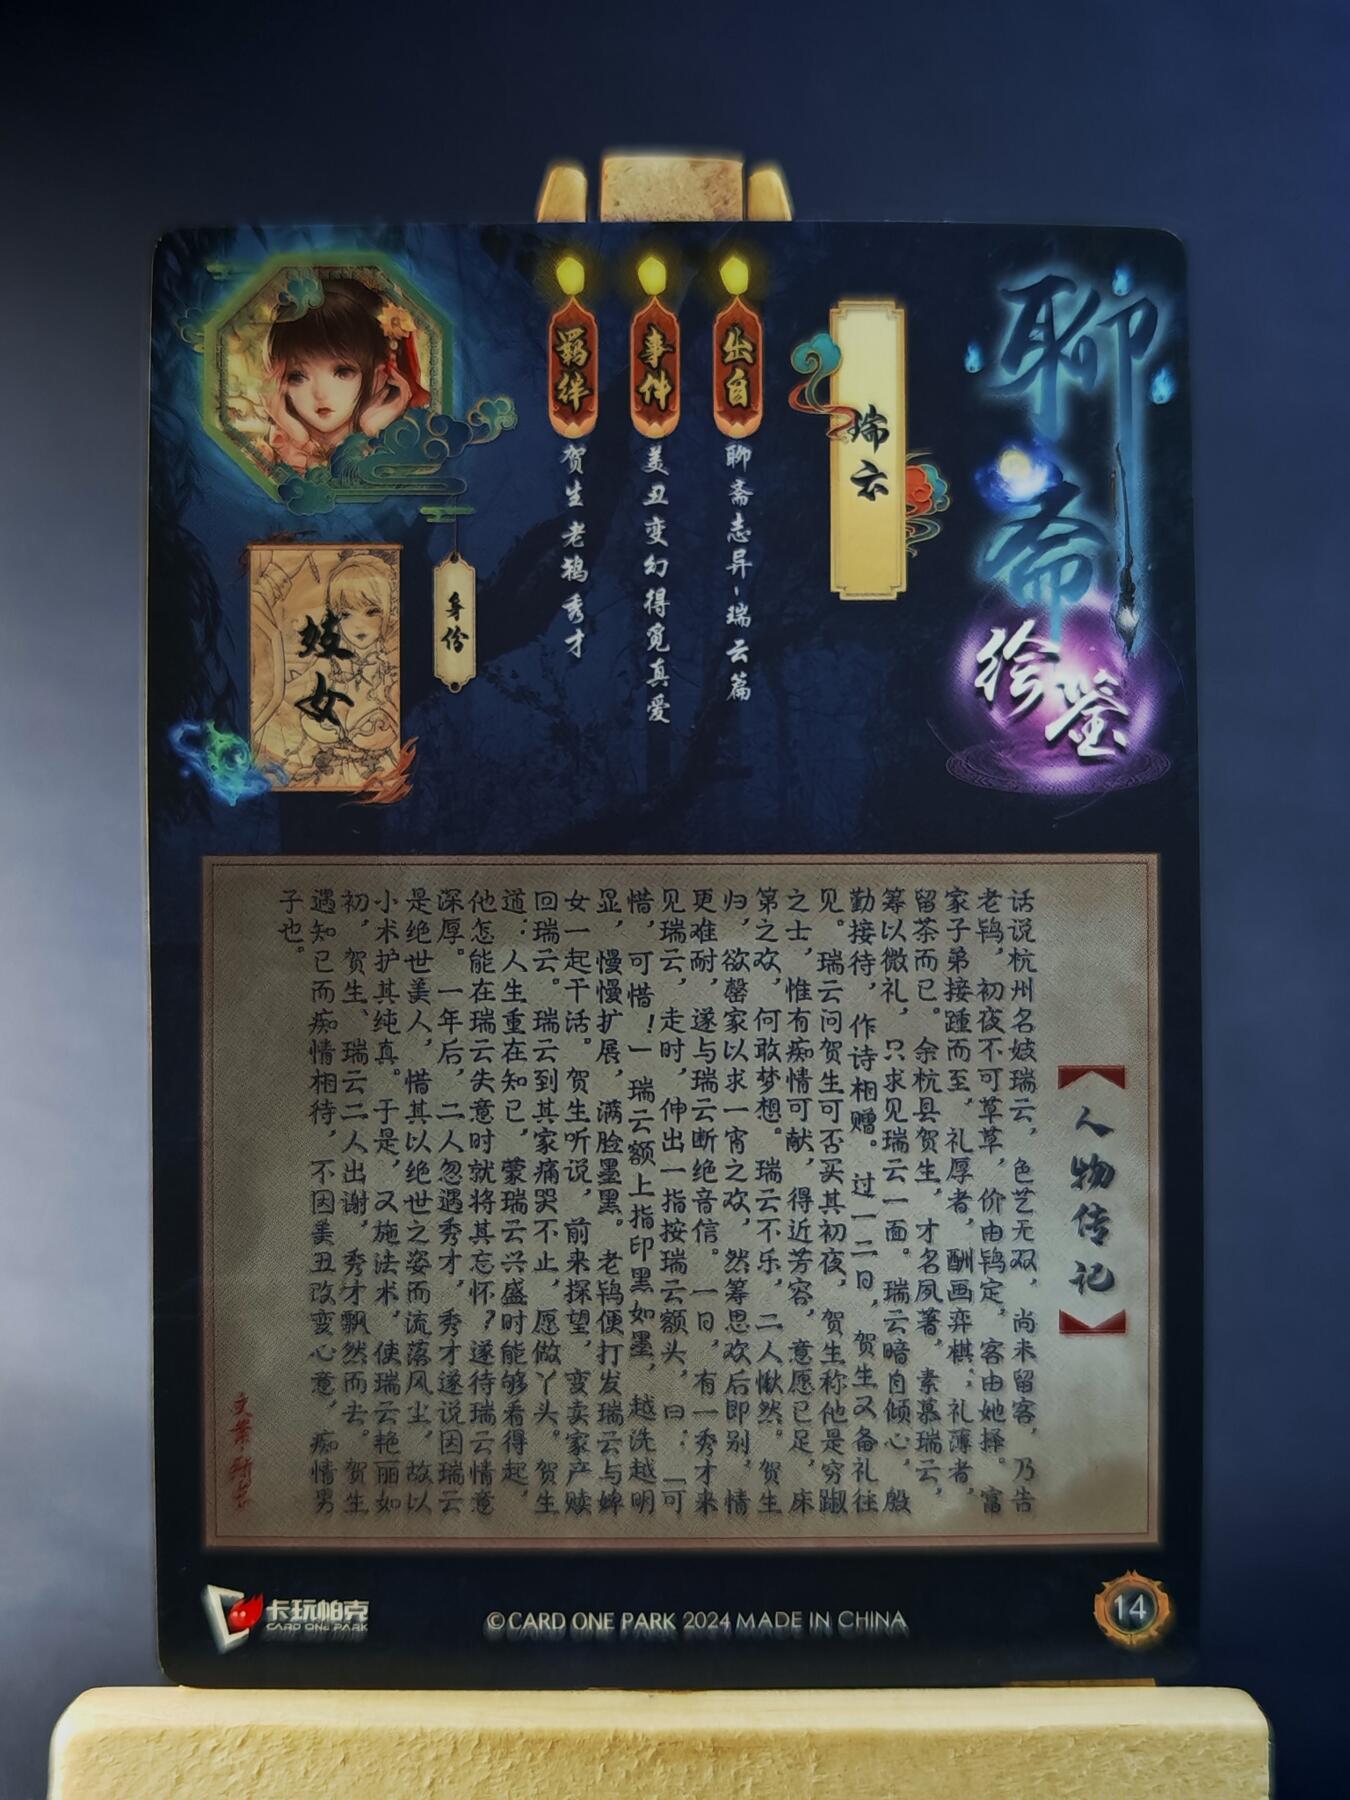 聊斋
绘鉴
瑞云
出自
聊斋志异-瑞云篇
事件
美丑变幻得觅真爱
羁绊
贺生老鸨秀才
身份
妓女
【人物传记】
话说杭州名妓瑞云，色艺无双，尚未留客，乃告
老鸨，初夜不可草草，价由鸨定，客由她择。富
家子弟接踵而至，礼厚者，酬画弈棋；礼薄者，
留茶而已。余杭县贺生，才名夙著，素慕瑞云，
筹以微礼，只求见瑞云一面。瑞云暗自倾心，殷
勤接待，作诗相赠。过一二日，贺生又备礼往
见。瑞云问贺生可否买其初夜，贺生称他是穷踧
之士，惟有痴情可献，得近芳容，意愿已足，床
第之欢，何敢梦想。瑞云不乐，二人愀然。贺生
归，欲罄家以求一宵之欢，然筹思欢后即别，情
更难耐，遂与瑞云断绝音信。一日，有一秀才来
见瑞云，走时，伸出一指按瑞云额头，曰：「可
惜，可惜！一瑞云额上指印黑如墨，越洗越明
显，慢慢扩展，满脸墨黑。老鸨便打发瑞云与婢
女一起干活。贺生听说，前来探望，变卖家产赎
回瑞云。瑞云到其家痛哭不止，愿做丫头。贺生
道：人生重在知己，蒙瑞云兴盛时能够看得起，
他怎能在瑞云失意时就将其忘怀？遂待瑞云情意
深厚。一年后，二人忽遇秀才，秀才遂说因瑞云
是绝世美人，惜其以绝世之姿而流落风尘，故以
小术护其纯真。于是，又施法术，使瑞云艳丽如
初，贺生、瑞云二人出谢，秀才飘然而去。贺生
遇知己而痴情相待，不因美丑改变心意，痴情男
子也。
卡玩帕克
CARD ONE PARK
©CARD ONE PARK 2024 MADE IN CHINA
14